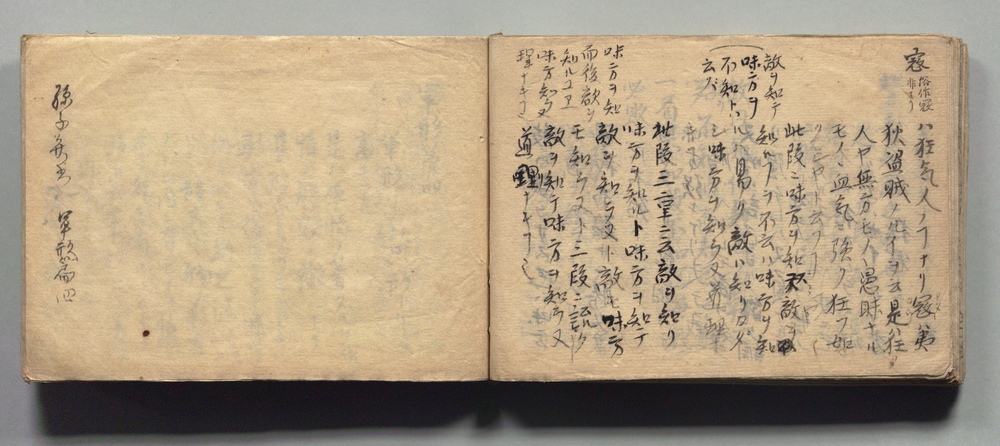 寇 俗作冦
非ナリ
ハ狂気人ノフナリ 冦弟
狄盗賊ノルイヲ云是ハ狂
人ヤ無方モノヤ愚昧ナル
モノヤ血気ニ強ク狂フ
此段ニ味方ヲ知 敵ヲ
知ルフヲ不云ハ味方ヲ知
ルハ易ク敵ハ知リカタ
シ味方ヲ知ラヌ道理
敵ヲ知テ
味方ヲ
不知トハ
云ズ
此段三二重ニ云敵ヲ知リ
味方ヲ知ルト味方ヲ知テ
敵ヲ知ラヌト敵モ味方
モ知ラヌト三段ニ云ルゾ
敵ヲ知テ味方ヲ知ラヌ
道理ナキフ也
味方ヲ知
而後敵ヲ
知ルユヱ
味方知ラヌ
理ナキフ也
孫子兵書 軍形扁四